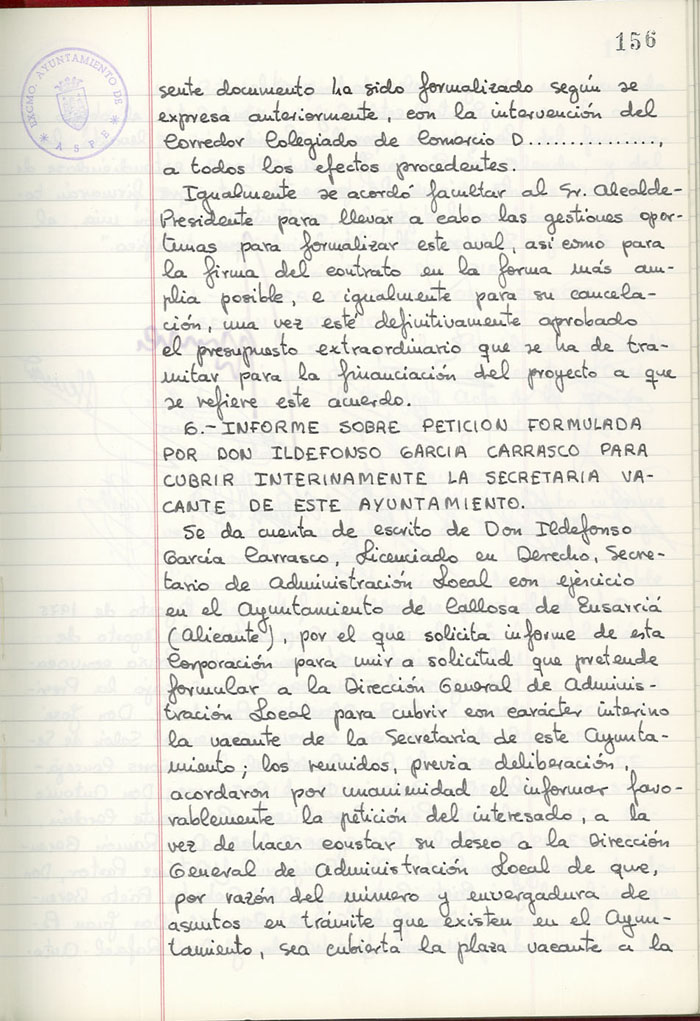 156
EXCMO. AYUNTAMIENTO DE
* ASPE *
sente documento ha sido formalizado según se
expresa anteriormente, con la intervención del
Corredor Colegiado de Comercio D...............,
a todos los efectos procedentes.
Igualmente se acordó facultar al Sr. Alcalde-
Presidente para llevar a cabo las gestiones opor-
tunas para formalizar este aval, así como para
la firma del contrato en la forma más am-
plia posible, e igualmente para su cancela-
ción, una vez esté definitivamente aprobado
el presupuesto extraordinario que se ha de tra-
mitar para la financiación del proyecto a que
se refiere este acuerdo.
6.- INFORME SOBRE PETICION FORMULADA
POR DON ILDEFONSO GARCIA CARRASCO PARA
CUBRIR INTERINAMENTE LA SECRETARIA VA-
CANTE DE ESTE AYUNTAMIENTO.
Se da cuenta de escrito de Don Ildefonso
García Carrasco, Licenciado en Derecho, Secre-
tario de Administración Local con ejercicio
en el Ayuntamiento de Callosa de Ensarriá
(Alicante), por el que solicita informe de esta
Corporación para unir a solicitud que pretende
formular a la Dirección General de Adminis-
tración Local para cubrir con carácter interino
la vacante de la Secretaría de este Ayunta-
miento; los reunidos, previa deliberación,
acordaron por unanimidad el informar favo-
rablemente la petición del interesado, a la
vez de hacer constar su deseo a la Dirección
General de Administración Local de que,
por razón del número y envergadura de
asuntos en trámite que existen en el Ayun-
tamiento, sea cubierta la plaza vacante a la